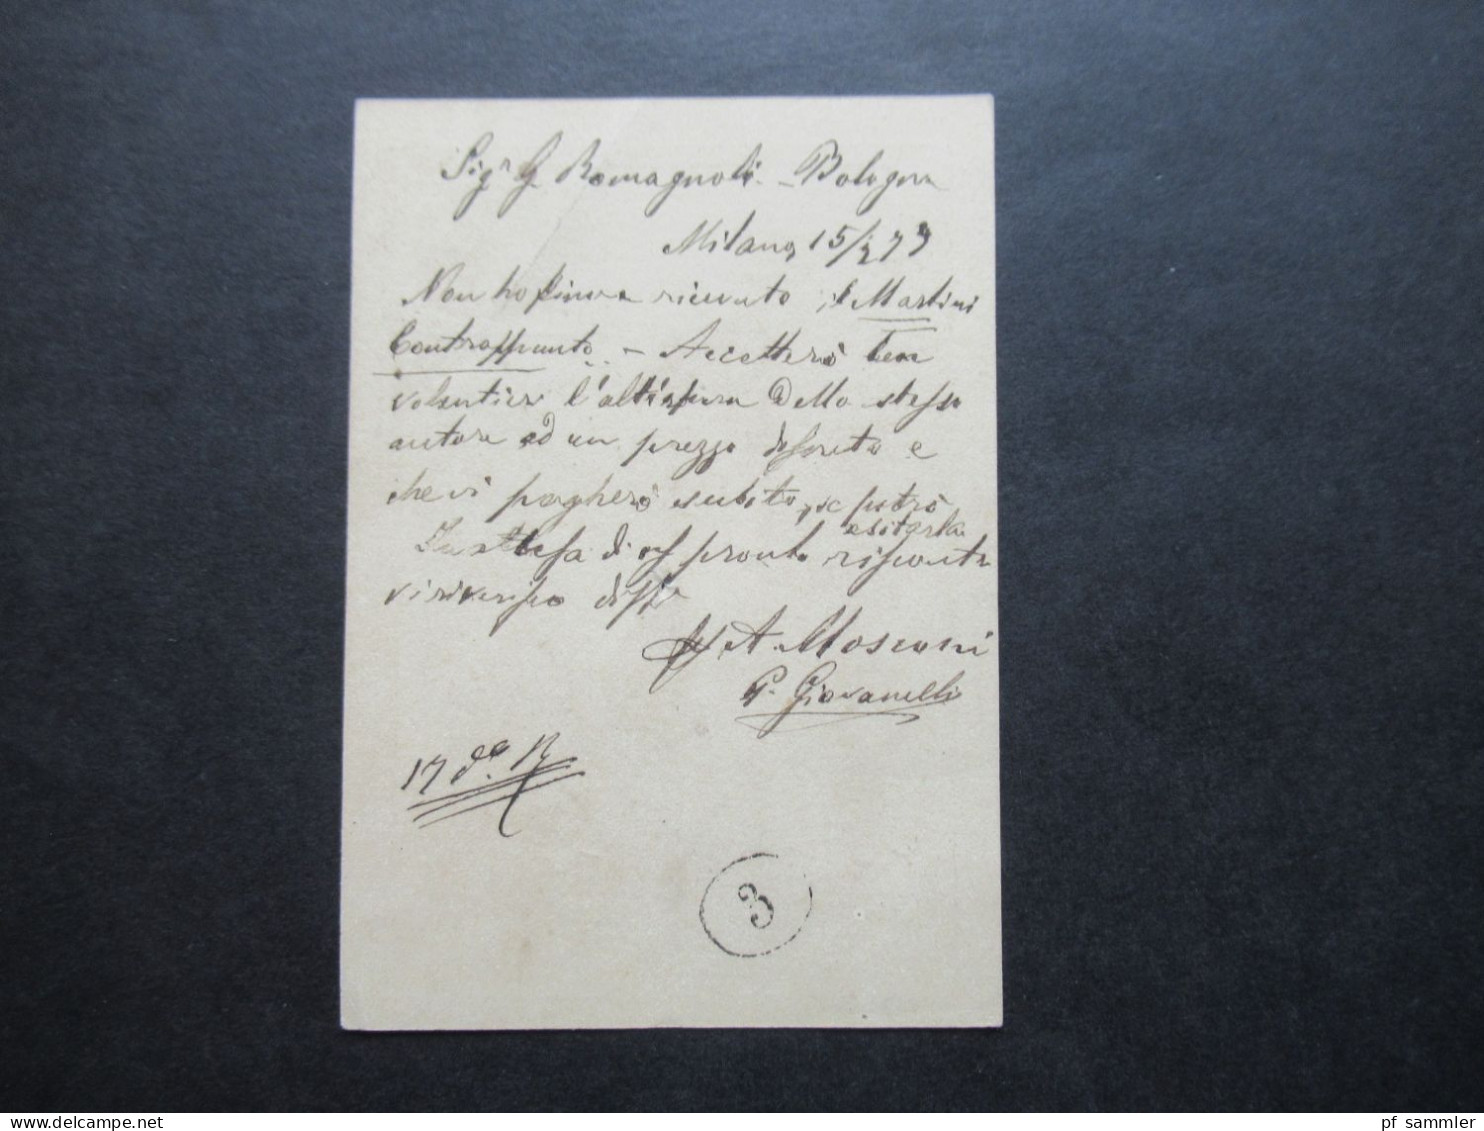 Sigr G Romagnoli - Bologna
Milano, 15/2 79
Non ho finora ricevuto il Martini
Contrappunto - Accetterò ben
volentieri l'altra opera dello stesso
autore ad un prezzo discreto e
che vi pagherò subito, se potrò
esitarla
In attesa di pronto riscontro
vi riverisco
A. Mosconi
G. Giovanelli
17 do. R
3
pf sammler